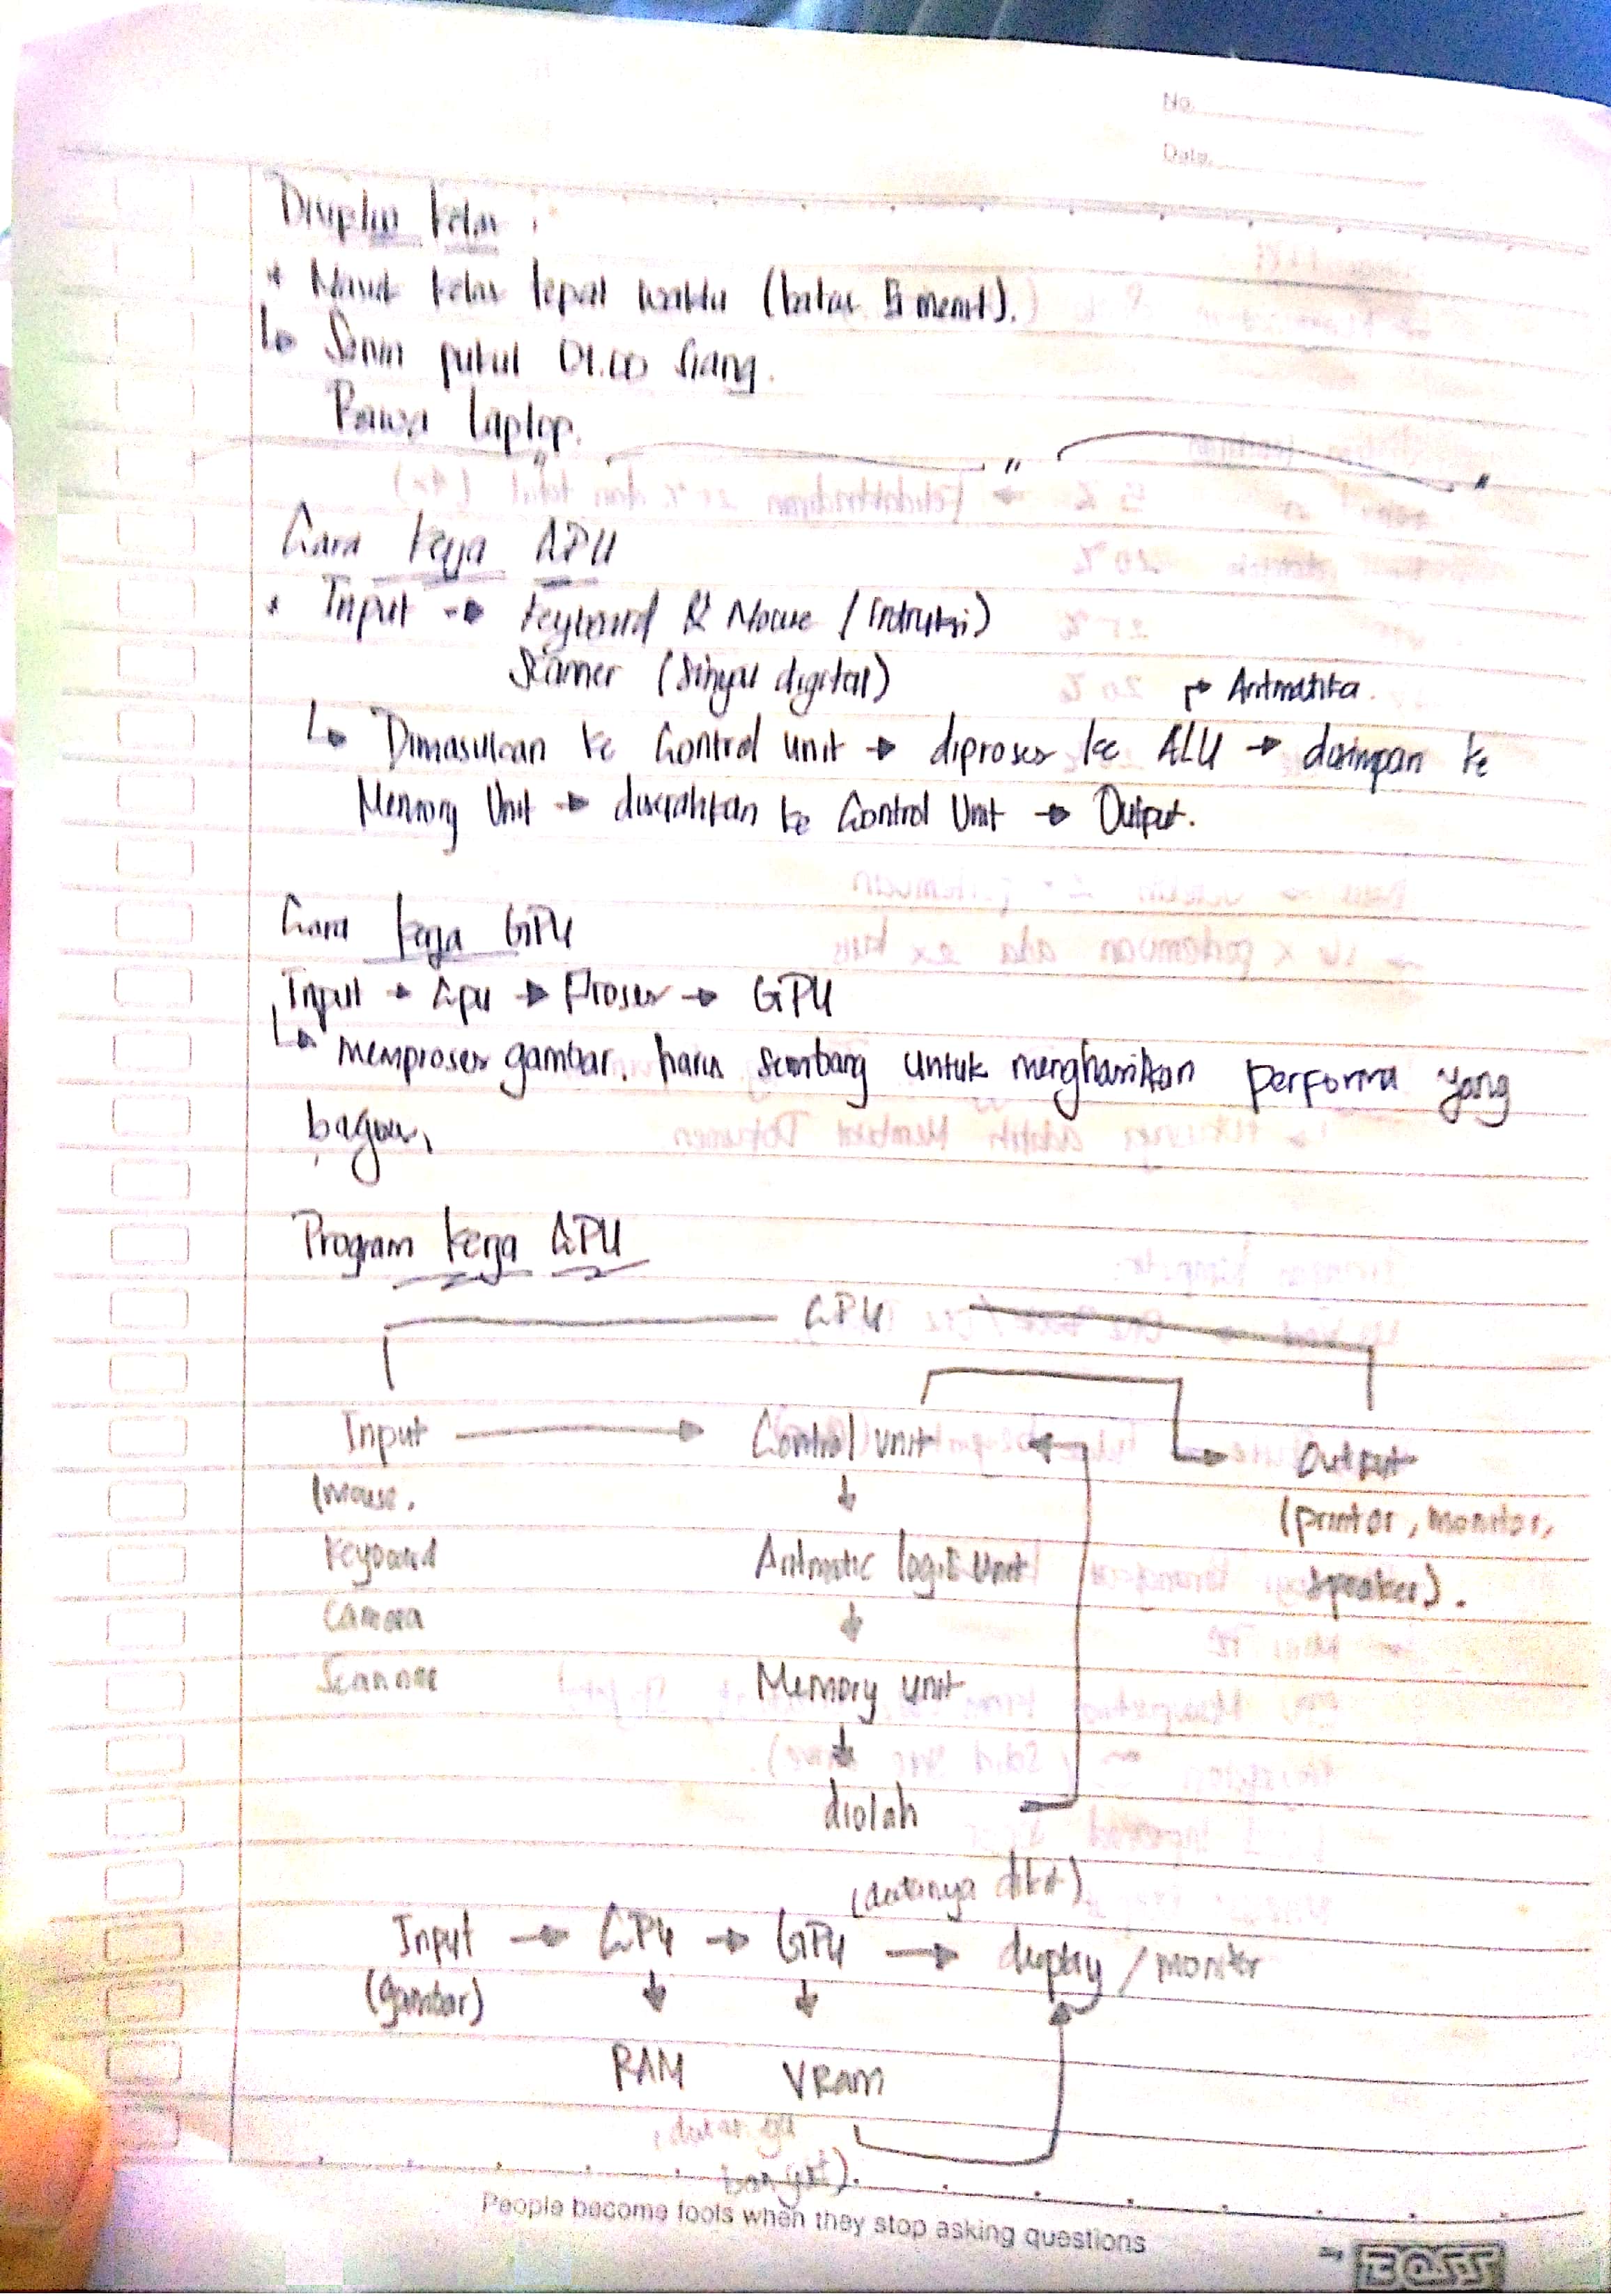 No.
Date.
Disiplin kelas.
* Masuk kelas tepat waktu (batas 5 menit).
↳ Senin pukul 01.00 siang.
Bawa laptop.
Cara kerja CPU
* Input → Keyboard & Mouse (Intruksi)
Scanner (Sinyal digital)
↱ Aritmatika.
↳ Dimasukan ke Control unit → diproses ke ALU → disimpan ke
Memory Unit → diserahkan ke Control Unit → Output.
Cara kerja GPU
Input → Cpu → Proses → GPU
↳ memproses gambar. harus seimbang untuk menghasilkan performa yang
bagus.
Program kerja CPU
CPU
Input → Control unit → Output
(mouse. ↓ (printer, monitor,
Keyboard Aritmatic logic Unit speaker).
Camera ↓
Scanner Memory unit
↓
diolah
(datanya dikit)
Input → CPU → GPU → display / monitor
(gambar) ↓ ↓
RAM VRam
banget).
People become fools when they stop asking questions